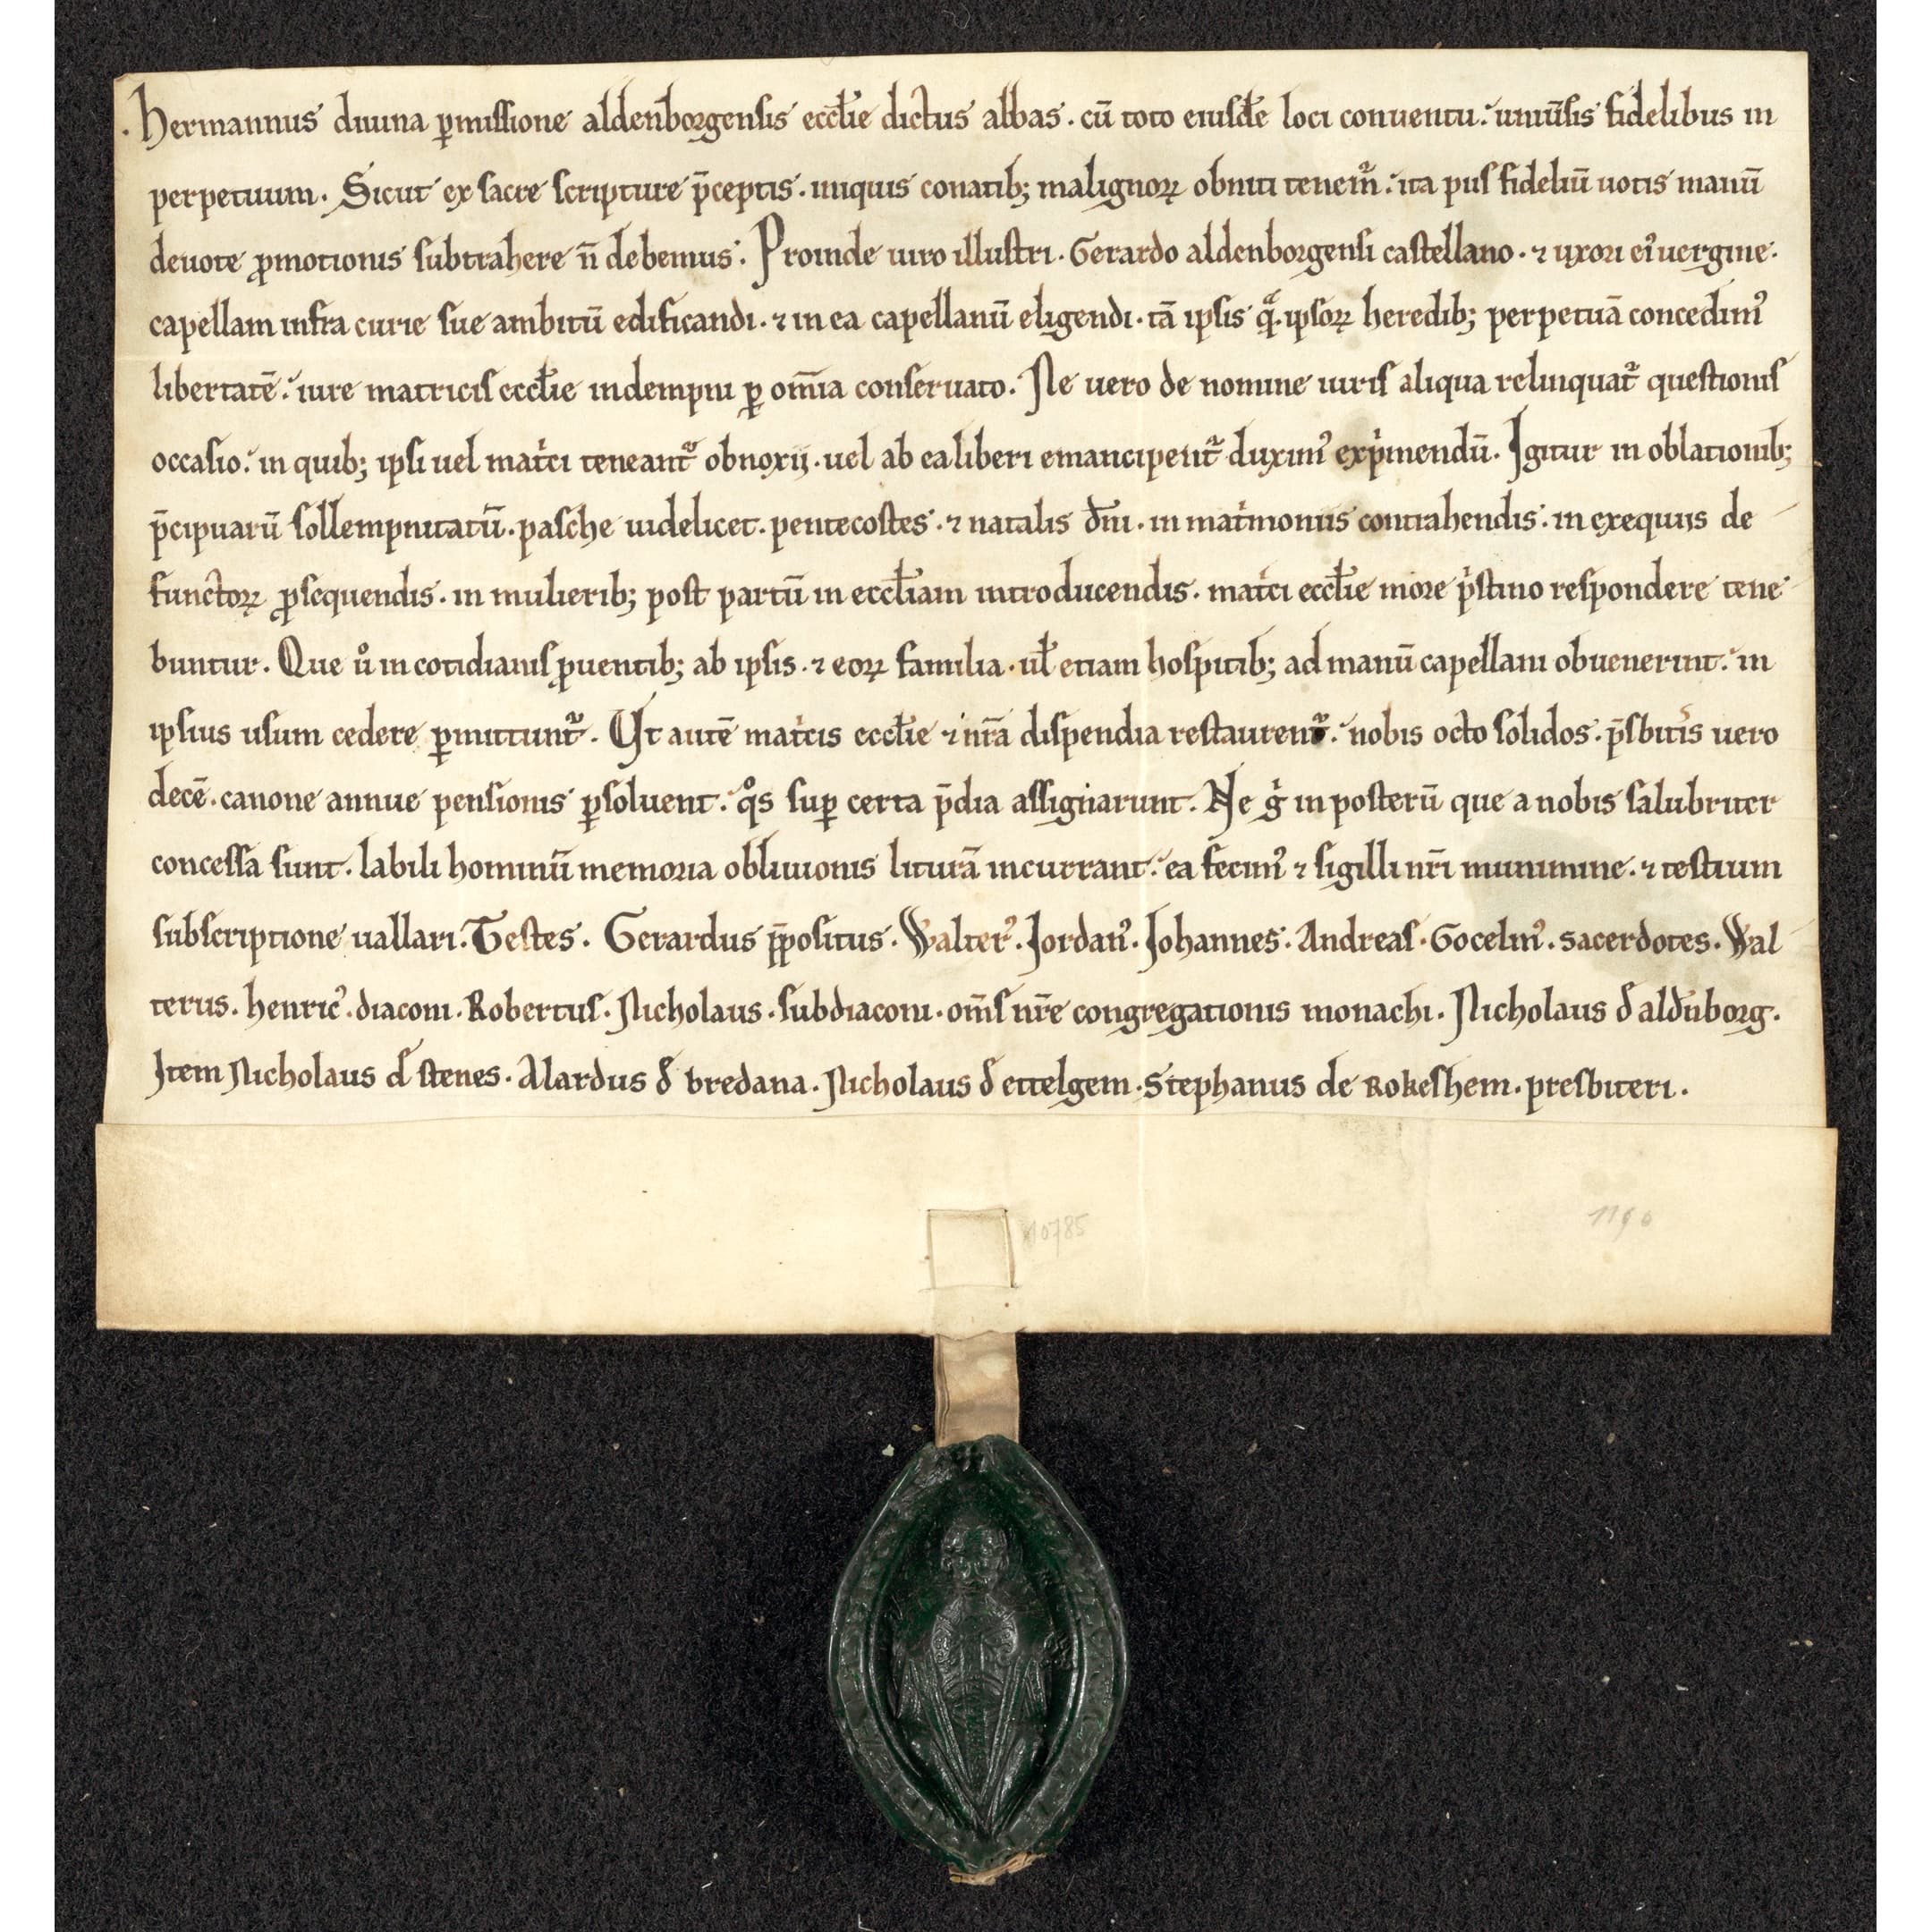 · Hermannus diuina ꝑmissione aldenborgensis eccl̄ie dictus abbas · cū toto eiusdē loci conuentu ·' uniūsis fidelibus in
perpetuum · Sicut ex sacre scripture p̄ceptis · iniquis conatib; malignoꝝ obniti tenem᷑ ·' ita pus fideliū uotis manū
deuote ꝓmotionis subtrahere n̄ debemus · Proinde uiro illustri · Gerardo aldenborgensi castellano · ⁊ uxori eiꝰ uergine ·
capellam infra curie sue ambitū edificandi · ⁊ in ea capellanū eligendi · tā ipsis qͣ̄ · ipsoꝝ heredib; perpetuā concedimꝰ
libertatē ·' iure matricis eccl̄ie indempni ꝑ om̄ia conseruato · Ne uero de nomine iuris aliqua relinquat᷑ questionis
occasio ·' in quib; ipsi uel matͥci teneant᷑ obnoxij · uel ab ea liberi emancipent᷑ duximꝰ expͥmendū · Igitur in oblationib;
p̄cipuarū sollempnitatū · pasche uidelicet · pentecostes · ⁊ natalis dn̄i · in matͥmoniis contrahendis · in exequiis de
functoꝝ ꝓsequendis · in mulierib; post partū in eccl̄iam introducendis · matͥci eccl̄ie more pͥstino respondere tene
buntur · Que uͦ in cotidianis ꝓuentib; ab ipsis · ⁊ eoꝝ familia · ul̄ etiam hospitib; ad manū capellani obuenerint ·' in
ipsius usum cedere ꝑmittunt᷑ · Ut autē matͥcis eccl̄ie ⁊ nr̄a dispendia restaurent᷑ ·' nobis octo solidos · p̄sbitis vero
decē · canone annue pensionis ꝑsoluent ·' qͦs suꝑ certa p̄dia assignarunt · Ne gͥ in posterū que a nobis salubriter
concessa sunt · labili hominū memoria obliuionis liturā incurrant ·' ea fecimꝰ ⁊ sigilli nr̄i munimine · ⁊ testium
subscriptione uallari · Testes · Gerardus p̄positus · Walterꝰ · Jordanꝰ · Johannes · Andreas · Gocelinꝰ · sacerdotes · Wal
terus · henricꝰ · diaconi · Robertus · Nicholaus · subdiaconi · om̄s nr̄e congregationis monachi · Nicholaus đ ald̄nborg ·
Item Nicholaus đ stenes · Alardus đ bredana · Nicholaus đ ettelgem · Stephanus de Rokeshem · presbiteri ·
10785
1190